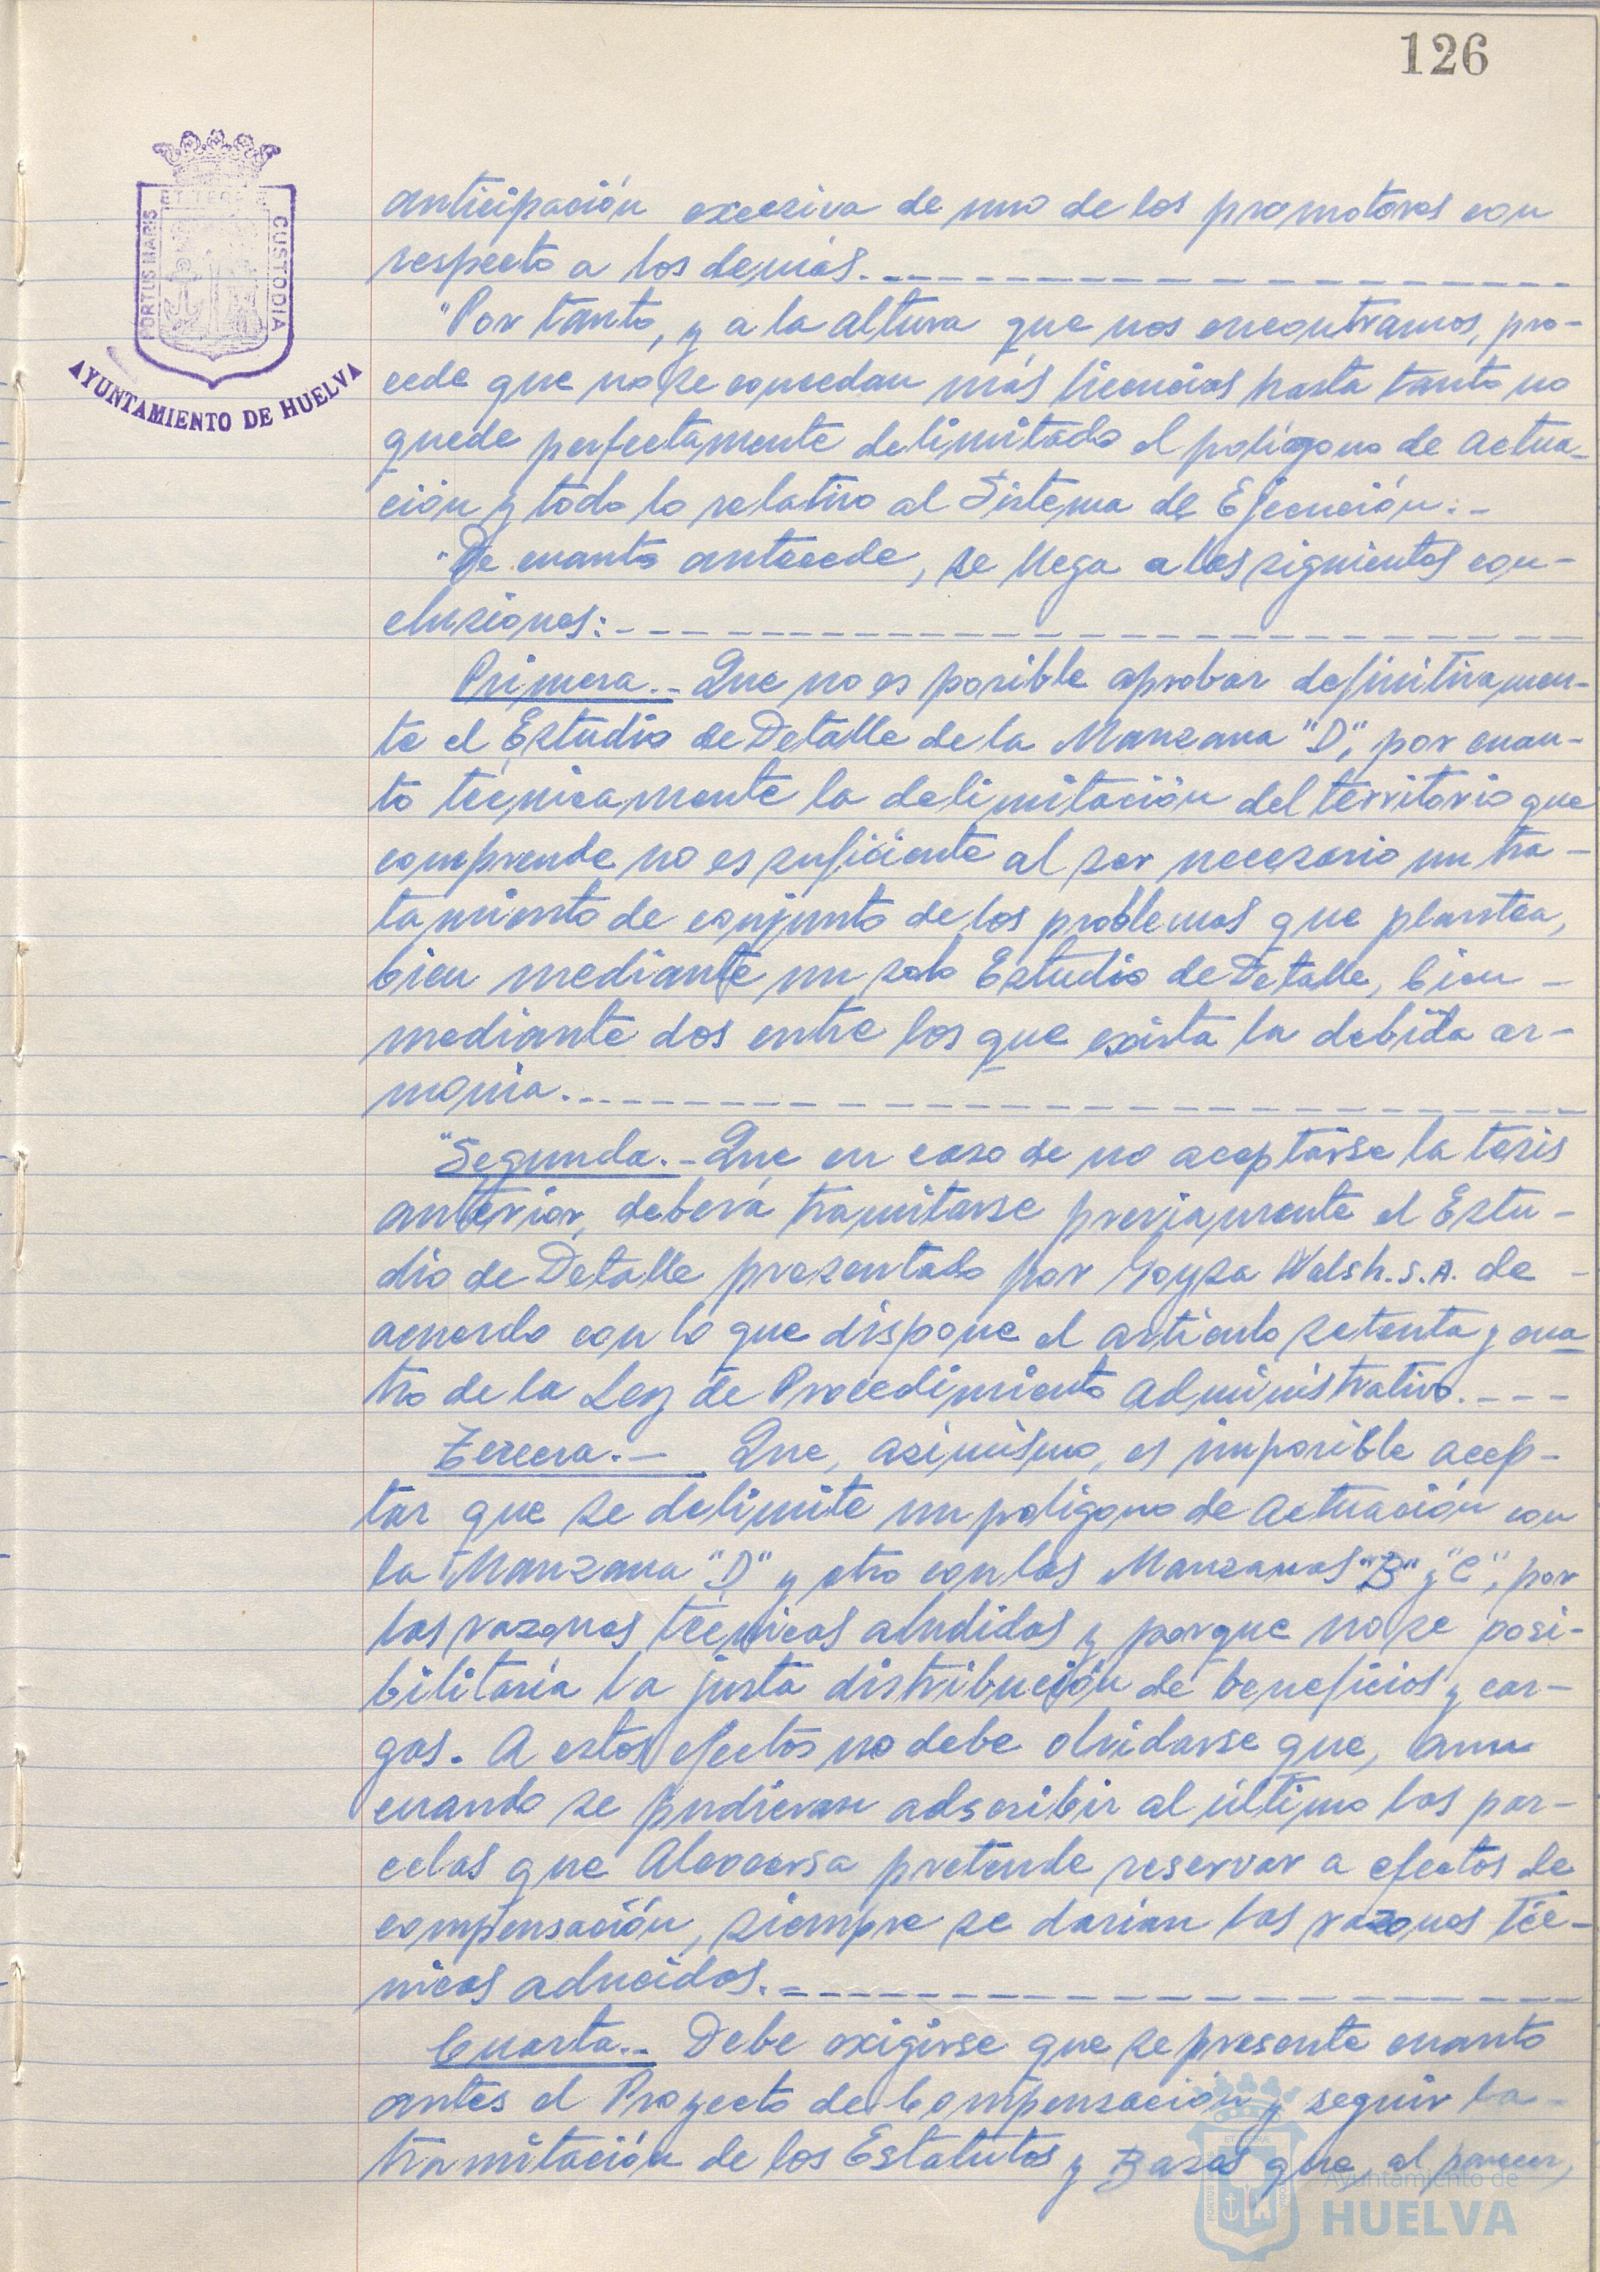 126
ET TERRAE
PORTUS MARIS
CUSTODIA
AYUNTAMIENTO DE HUELVA
anticipación excesiva de uno de los promotores con
respecto a los demás.
"Por tanto, y a la altura que nos encontramos, pro-
cede que no se concedan más licencias hasta tanto no
quede perfectamente delimitado el polígono de actua-
ción y todo lo relativo al Sistema de Ejecución.-
"De cuanto antecede, se llega a las siguientes con-
clusiones:
Primera.- Que no es posible aprobar definitivamen-
te el Estudio de Detalle de la Manzana "D", por cuan-
to técnicamente la delimitación del territorio que
comprende no es suficiente al ser necesario un tra-
tamiento de conjunto de los problemas que plantea,
bien mediante un solo Estudio de Detalle, bien -
mediante dos entre los que exista la debida ar-
monia.
"Segunda.- Que en caso de no aceptarse la tesis
anterior, deberá tramitarse previamente el Estu-
dio de Detalle presentado por Goysa Walsh. S.A. de -
acuerdo con lo que dispone el articulo setenta y cua-
tro de la Ley de Procedimiento administrativo.
Tercera.- Que, asimismo, es imposible acep-
tar que se delimite un polígono de actuación con
la Manzana "D" y otro con las Manzanas "B" y "C", por
las razones técnicas aludidas y porque no se posi-
bilitaría la justa distribución de beneficios y car-
gas. A estos efectos no debe olvidarse que, aun
cuando se pudieran adscribir al último las par-
celas que pretende reservar a efectos de
compensación, siempre se darían las razones téc-
nicas aducidas.
Cuarta.- Debe exigirse que se presente cuanto
antes el Proyecto de Compensación y seguir la
tramitación de los Estatutos y Bases que, al parecer,
Ayuntamiento de
HUELVA